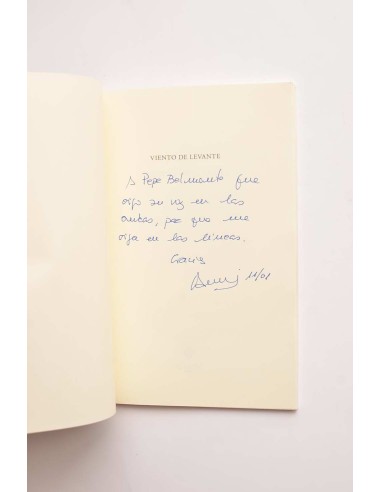 VIENTO DE LEVANTE
A Pepe Belmonte que
oigo su voz en las
ondas, por que me
oiga en las líneas.
Gracias
11/01